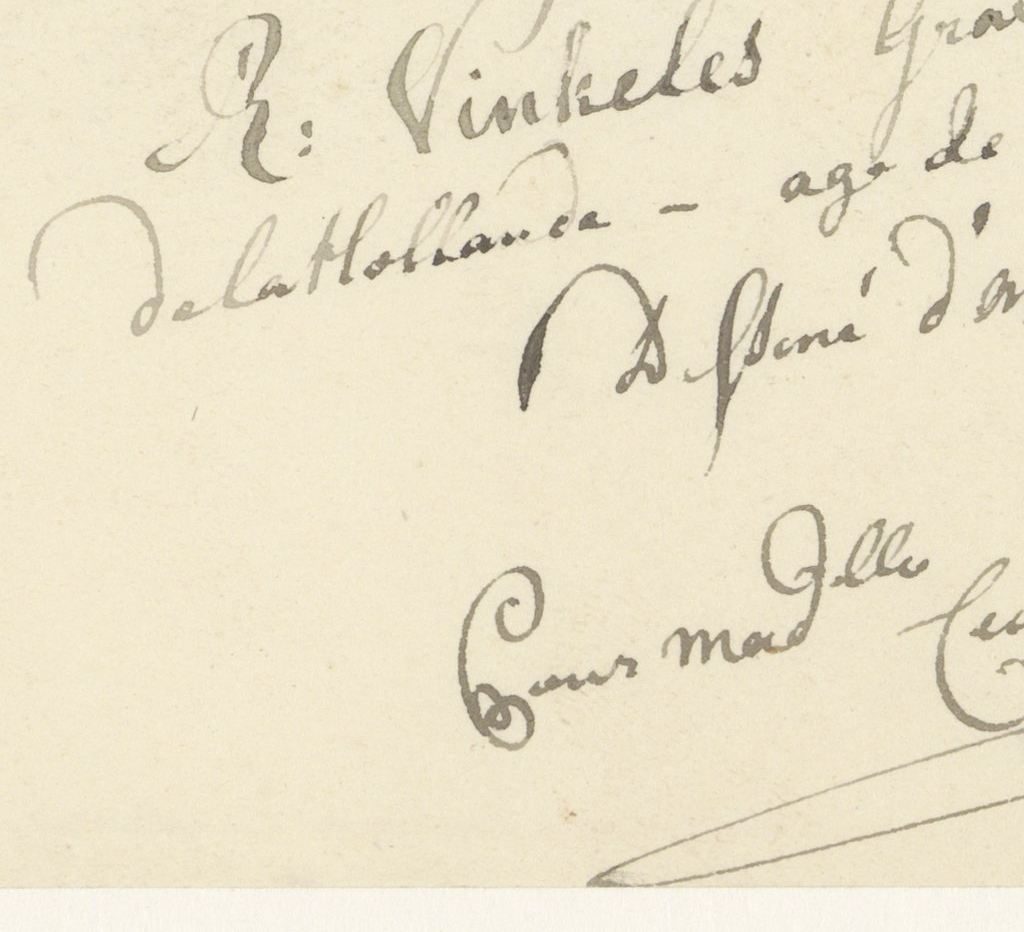 R: Vinkeles Gra
de la Hollande - age de
Dessiné d'
Pour mad elle